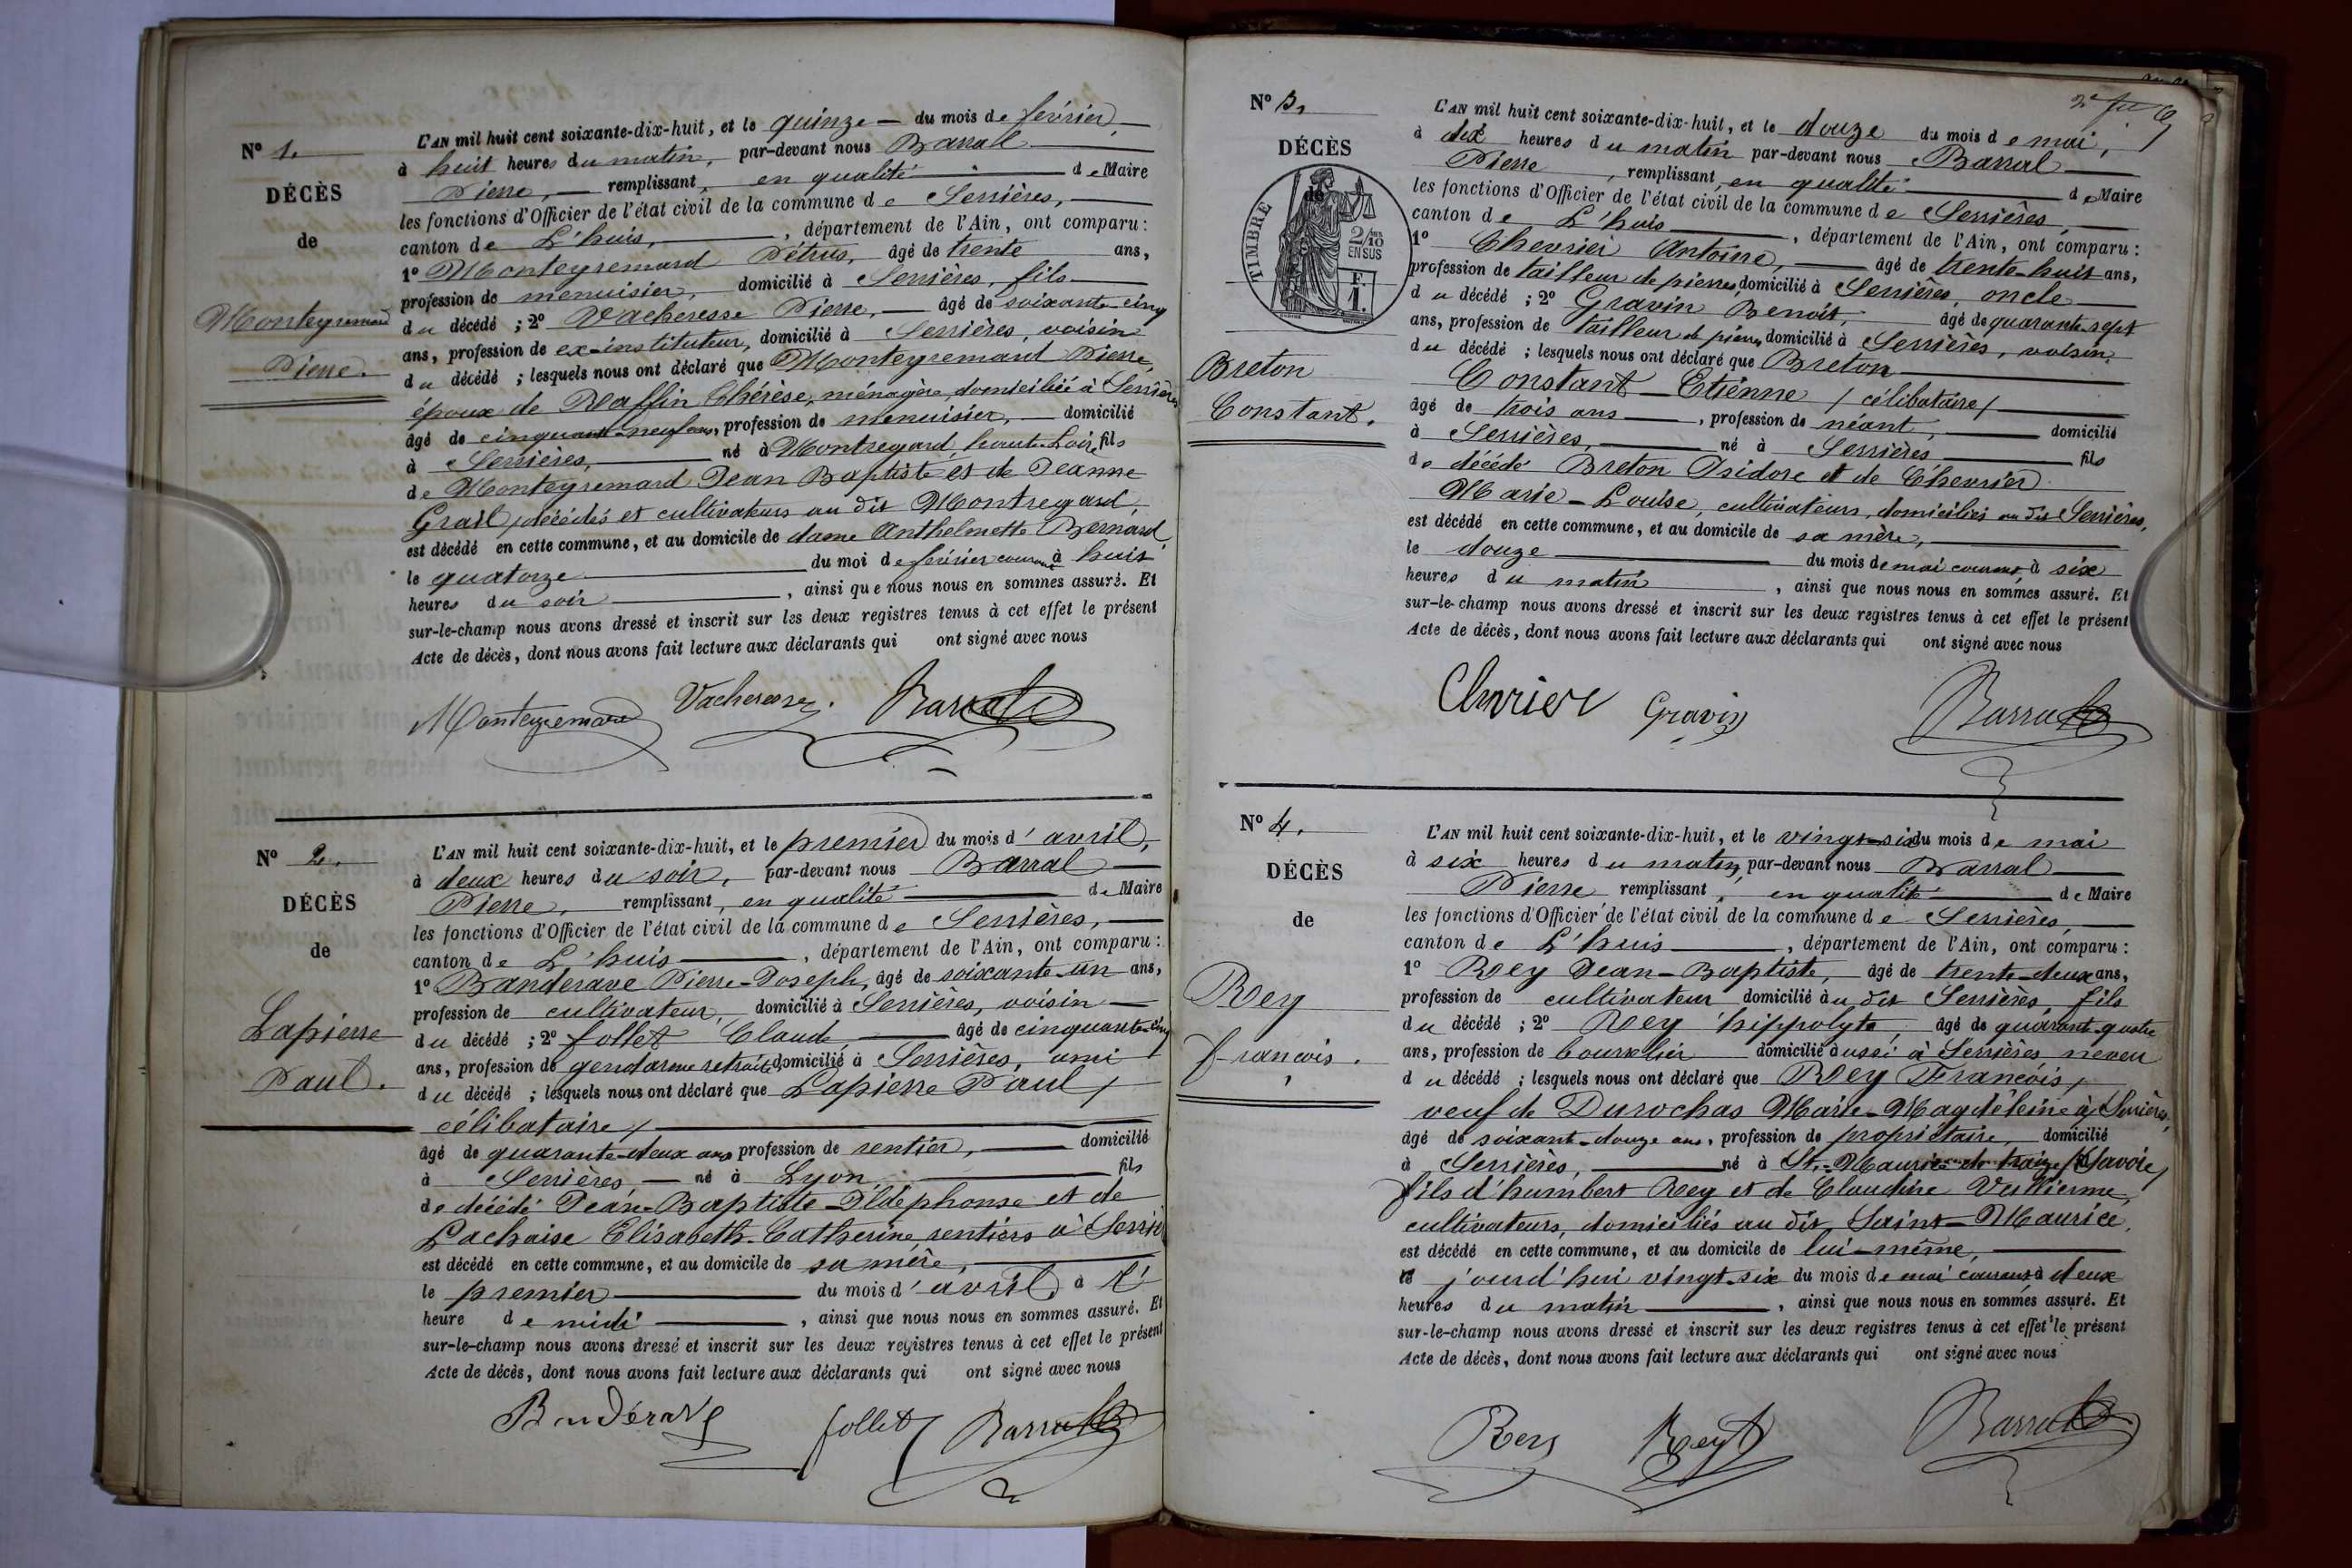 N° 1.
DÉCÈS
de
Monteyremard
Pierre.
L'AN mil huit cent soixante-dix-huit, et le quinze du mois de février,
à huit heures du matin, par-devant nous Barral
Pierre, remplissant, en qualité de Maire
les fonctions d'Officier de l'état civil de la commune de Serrières,
canton de L'huis, département de l'Ain, ont comparu :
1° Monteyremard Pétrus, âgé de trente ans,
profession de menuisier, domicilié à Serrières, fils
du décédé ; 2° Vacheresse Pierre, âgé de soixante-cinq
ans, profession de ex-instituteur, domicilié à Serrières, voisin
du décédé ; lesquels nous ont déclaré que Monteyremard Pierre,
époux de Raffin Thérèse, ménagère, domiciliée à Serrières
âgé de cinquante-neuf ans, profession de menuisier, domicilié
à Serrières, né à Montregard, haute-Loire, fils
de Monteyremard Jean Baptiste et de Jeanne
Grail, décédés et cultivateurs au dit Montregard,
est décédé en cette commune, et au domicile de dame Anthelmette Bernard,
le quatorze du moi de février courant à huit
heures du soir, ainsi que nous nous en sommes assuré. Et
sur-le-champ nous avons dressé et inscrit sur les deux registres tenus à cet effet le présent
Acte de décès, dont nous avons fait lecture aux déclarants qui ont signé avec nous
Monteyremard Vacheresse. Barral
N° 2.
DÉCÈS
de
Lapierre
Paul.
L'AN mil huit cent soixante-dix-huit, et le premier du mois d'avril,
à deux heures du soir, par-devant nous Barral
Pierre, remplissant, en qualité de Maire
les fonctions d'Officier de l'état civil de la commune de Serrières,
canton de L'huis, département de l'Ain, ont comparu :
1° Banderave Pierre-Joseph, âgé de soixante-un ans,
profession de cultivateur, domicilié à Serrières, voisin
du décédé ; 2° follet Claude, âgé de cinquante-cinq
ans, profession de gendarme retraité, domicilié à Serrières, ami
du décédé ; lesquels nous ont déclaré que Lapierre Paul /
célibataire /
âgé de quarante-deux ans profession de rentier, domicilié
à Serrières, né à Lyon, fils
de décédé Jean-Baptiste-Ildephonse et de
Lachaise Elisabeth-Catherine, rentiers à
est décédé en cette commune, et au domicile de sa mère,
le premier du mois d'avril, à l'
heure de midi, ainsi que nous nous en sommes assuré. Et
sur-le-champ nous avons dressé et inscrit sur les deux registres tenus à cet effet le présent
Acte de décès, dont nous avons fait lecture aux déclarants qui ont signé avec nous
follet Barral
N° 3.
DÉCÈS
de
TIMBRE
2/10
EN SUS
F.
1.
Breton
Constant.
L'AN mil huit cent soixante-dix-huit, et le douze du mois de mai,
à dix heures du matin par-devant nous Barral
Pierre, remplissant, en qualité de Maire
les fonctions d'Officier de l'état civil de la commune de Serrières,
canton de L'huis, département de l'Ain, ont comparu :
1° Chevrier Antoine, âgé de trente-huit ans,
profession de tailleur de pierres, domicilié à Serrières, oncle
du décédé ; 2° Gravin Benoit, âgé de quarante-sept
ans, profession de tailleur de pierres, domicilié à Serrières, voisin,
du décédé ; lesquels nous ont déclaré que Breton
Constant-Etienne / célibataire /
âgé de trois ans, profession de néant, domicilié
à Serrières, né à Serrières fils
de décédé Breton Isidore et de Chevrier
Marie-Louise, cultivateurs, domiciliés au dit Serrières,
est décédé en cette commune, et au domicile de sa mère,
le douze du mois de mai courant à six
heures du matin, ainsi que nous nous en sommes assuré. Et
sur-le-champ nous avons dressé et inscrit sur les deux registres tenus à cet effet le présent
Acte de décès, dont nous avons fait lecture aux déclarants qui ont signé avec nous
Gravin Barral
N° 4.
DÉCÈS
de
Rey
françois.
L'AN mil huit cent soixante-dix-huit, et le vingt-six du mois de mai
à six heures du matin, par-devant nous Barral
Pierre remplissant, en qualité de Maire
les fonctions d'Officier de l'état civil de la commune de Serrières,
canton de L'huis, département de l'Ain, ont comparu :
1° Rey Jean-Baptiste, âgé de trente-deux ans,
profession de cultivateur domicilié au dit Serrières, fils
du décédé ; 2° Rey hippolyte, âgé de quarante-quatre
ans, profession de bourrelier domicilié aussi à Serrières neveu
du décédé ; lesquels nous ont déclaré que Rey François,
veuf de Durochas Marie-Magdeleine à Serrières,
âgé de soixante-douze ans, profession de propriétaire, domicilié
à Serrières, né à St.-Maurice de (Savoie)
fils d'humbert Rey et de Claudine Vullierme,
cultivateurs, domiciliés au dit Saint-Maurice,
est décédé en cette commune, et au domicile de lui-même,
le jourd'hui vingt-six du mois de mai courant à deux
heures du matin, ainsi que nous nous en sommes assuré. Et
sur-le-champ nous avons dressé et inscrit sur les deux registres tenus à cet effet le présent
Acte de décès, dont nous avons fait lecture aux déclarants qui ont signé avec nous
Rey Rey Barral